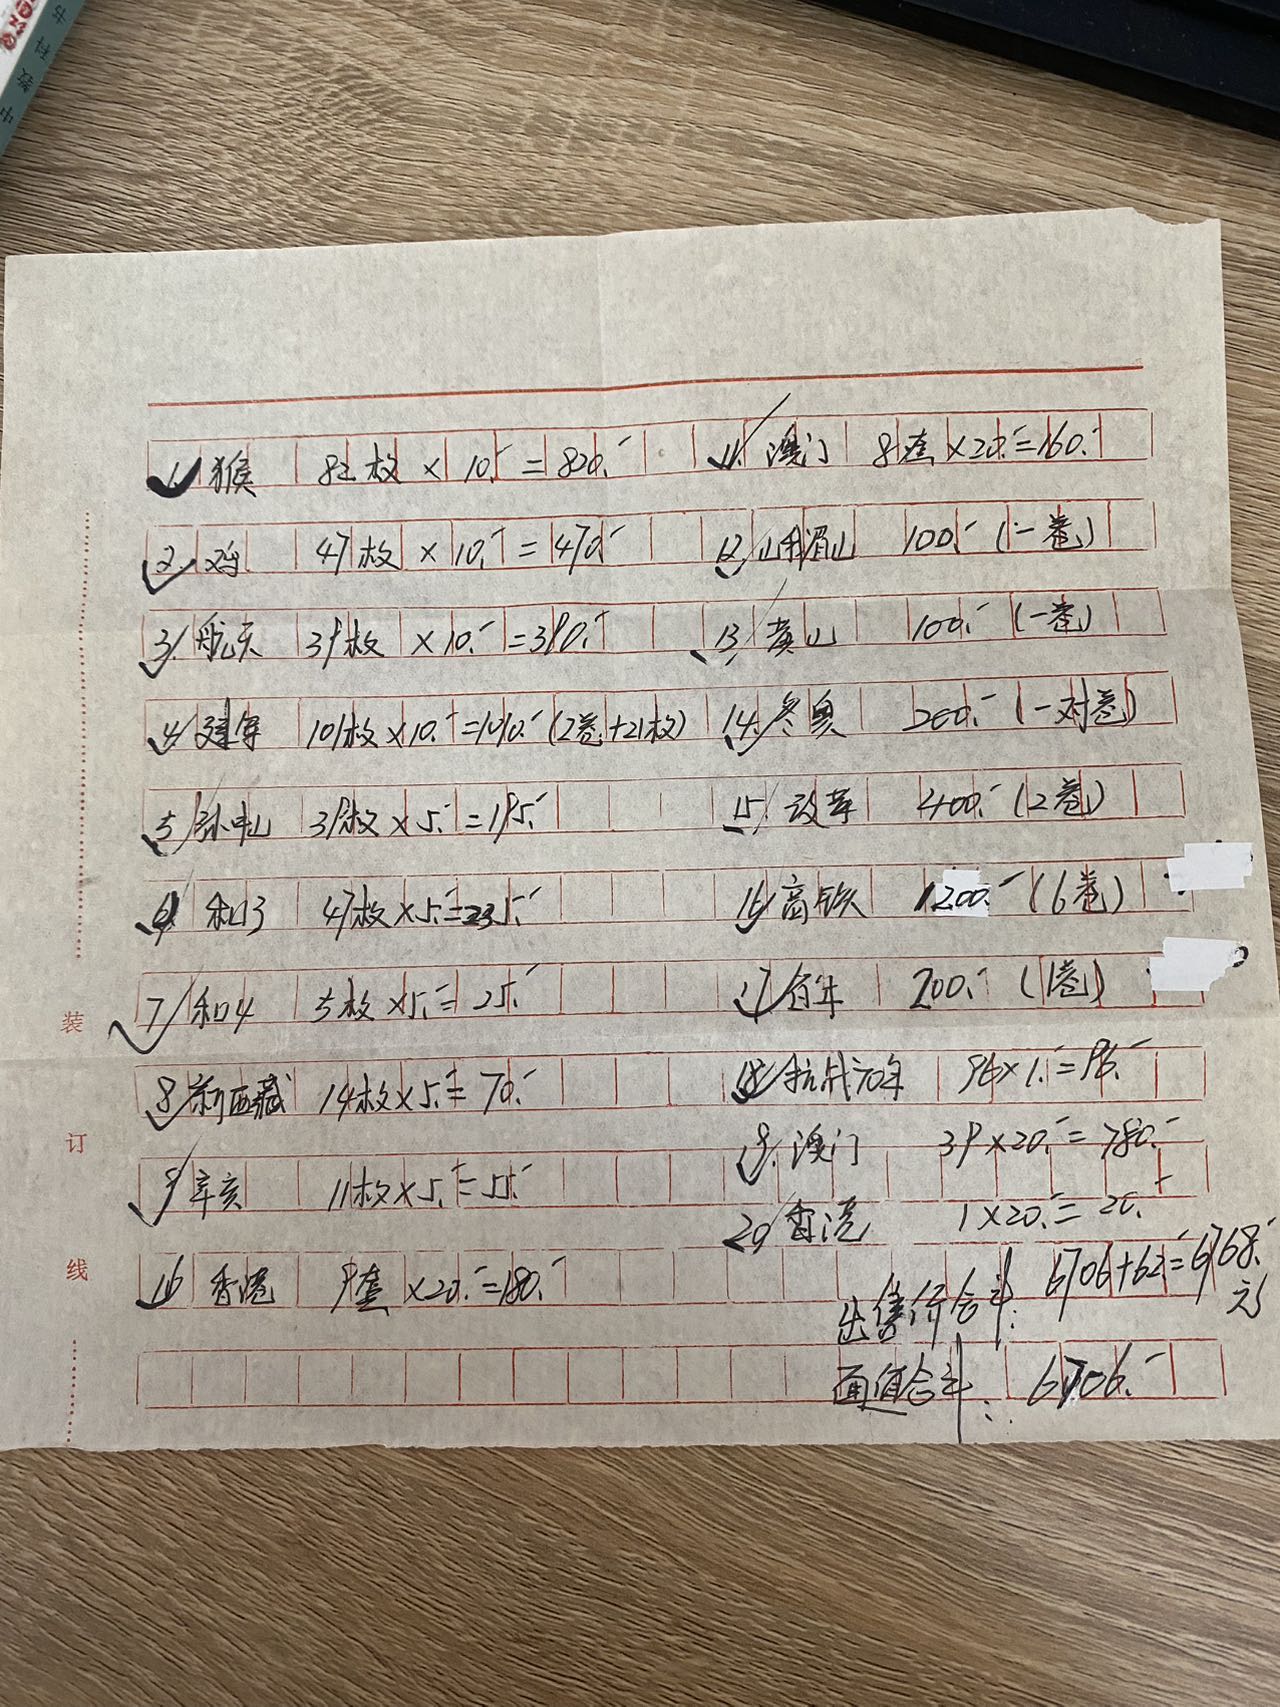 中教科书
1. 猴 82枚 × 10.- = 820.-
2. 鸡 47枚 × 10.- = 470.-
3. 航天 39枚 × 10.- = 390.-
4. 建军 101枚 × 10.- = 1010.- (2卷+21枚)
5. 孙中山 39枚 × 5.- = 195.-
6. 和3 47枚 × 5.- = 235.-
7. 和4 5枚 × 5.- = 25.-
8. 新西藏 14枚 × 5.- = 70.-
9. 辛亥 11枚 × 5.- = 55.-
10. 香港 9套 × 20.- = 180.-
11. 澳门 8套 × 20.- = 160.-
12. 峨眉山 100.- (一卷)
13. 黄山 100.- (一卷)
14. 冬奥 200.- (一对卷)
15. 改革 400.- (2卷)
16. 高铁 1200.- (6卷)
17. 百年 200.- (1卷)
18. 抗战70年 96 × 1.- = 96.-
19. 澳门 39 × 20.- = 780.-
20. 香港 1 × 20.- = 20.-
出售价合计: 6706+62.- = 6768.-元
面值合计: 6706.-
装
订
线